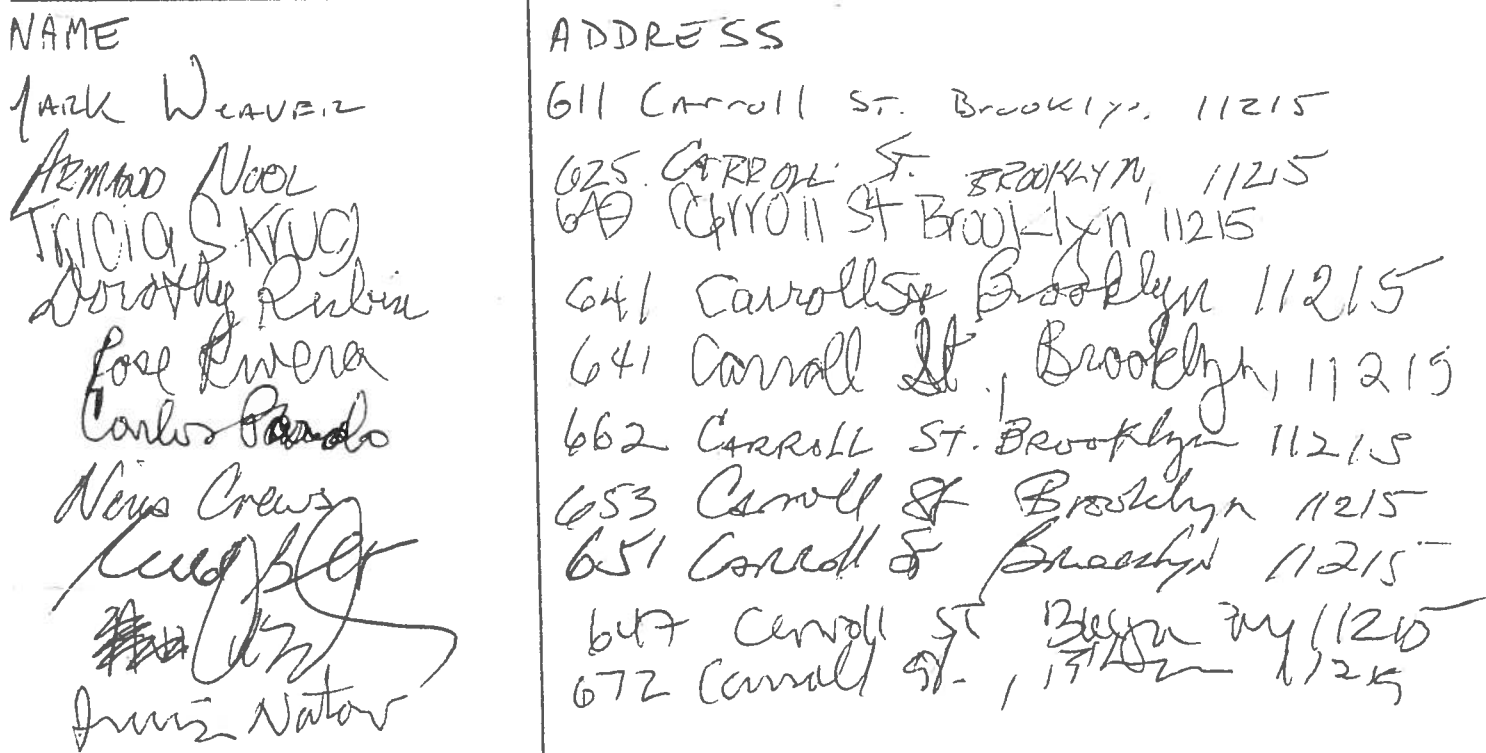 NAME ADDRESS
Mark Weaver 611 Carroll St. Brooklyn. 11215
Armand Noel 625 CARROLL St. BROOKLYN, 11215
Tricia S Krug Carroll St Brooklyn 11215
Dorothy Rubin 641 Carroll St Brooklyn 11215
Jose Rivera 641 Carroll St., Brooklyn, 11215
Carlos 662 CARROLL ST. Brooklyn 11215
Crews 653 Carroll St Brooklyn 11215
651 Carroll St Brooklyn 11215
647 Carroll ST ny 11215
Natov 672 Carroll St., 11215